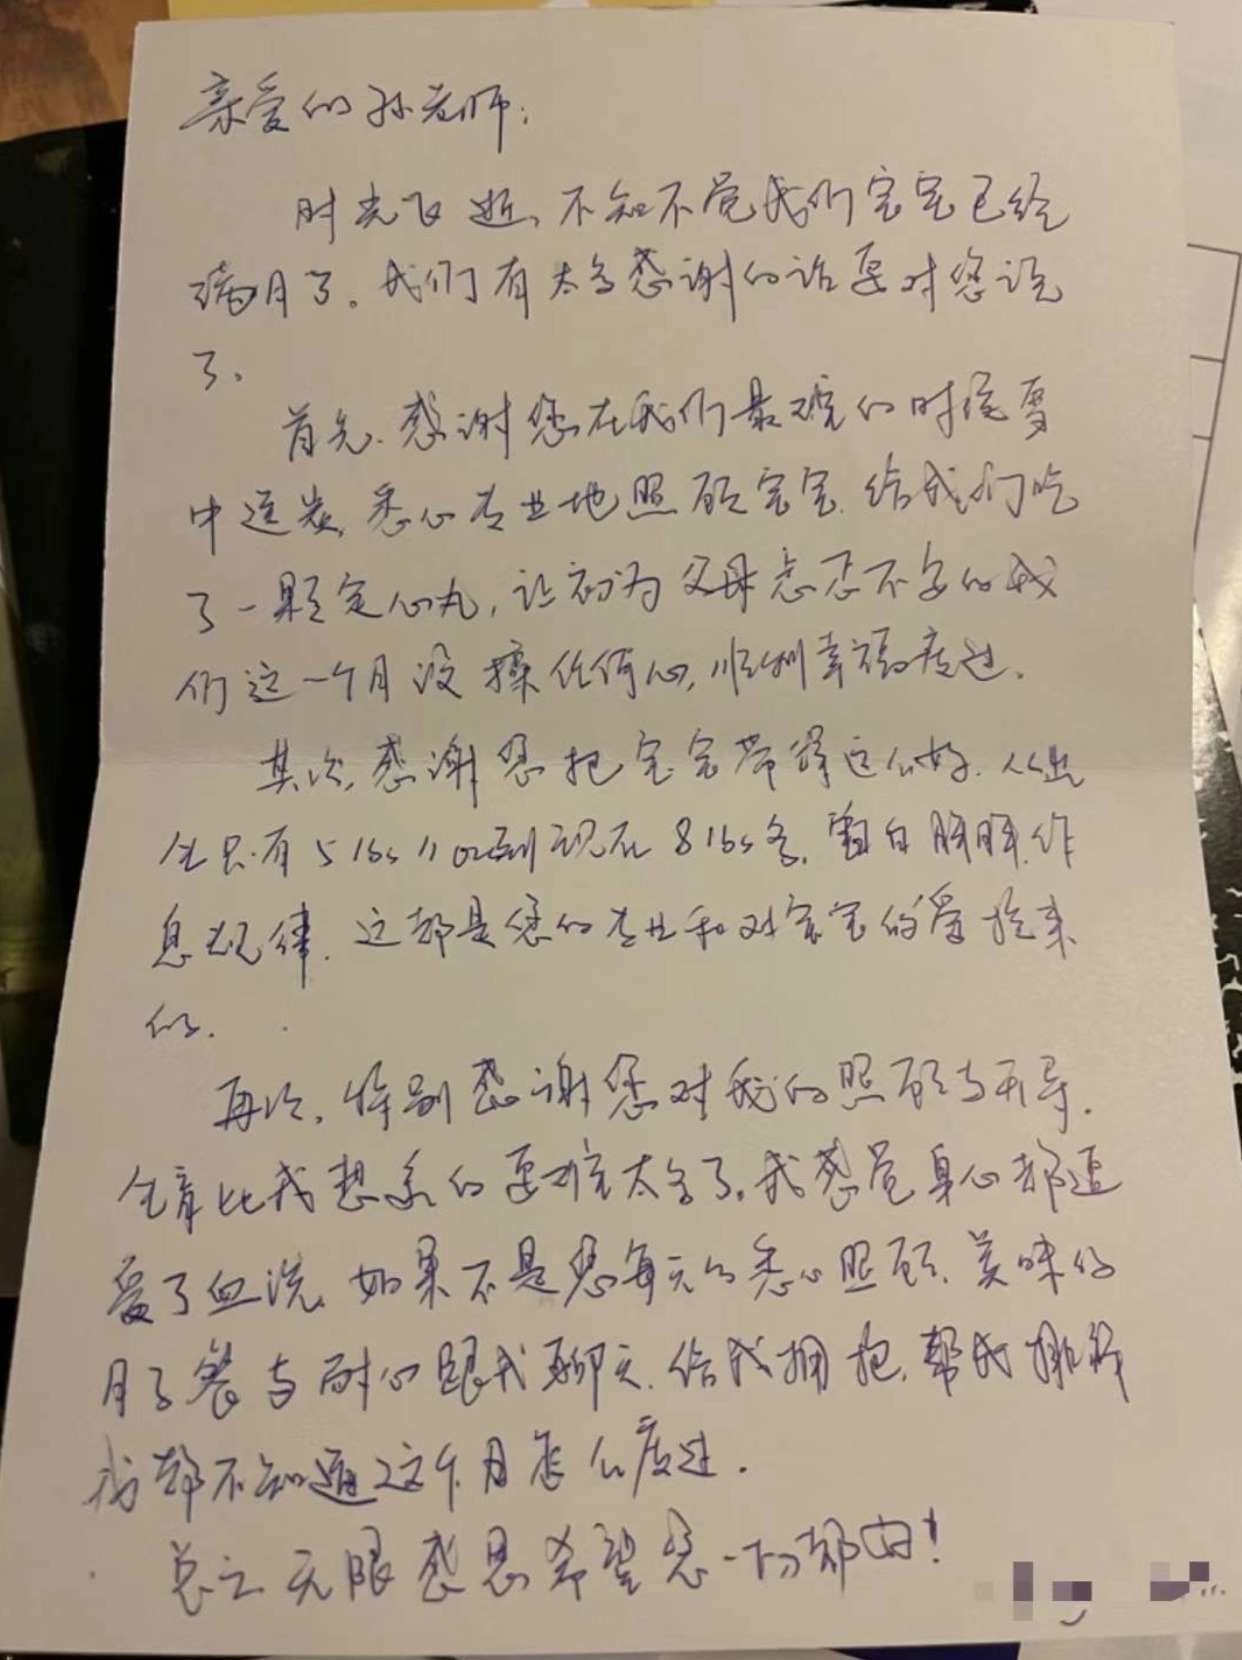 亲爱的孙老师:
时光飞逝,不知不觉我们宝宝已经
满月了。我们有太多感谢的话要对您说
了。
首先,感谢您在我们最难的时候雪
中送炭,悉心专业地照顾宝宝,给我们吃
了一颗定心丸,让初为父母忐忑不安的我
们这一个月没操任何心,顺利幸福度过.
其次,感谢您把宝宝带得这么好,从出
生只有5lbs11oz到现在8lbs多,白胖胖,作
息规律.这都是您的专业和对宝宝的爱换来
的.
再次,特别感谢您对我的照顾与开导.
生育比我想象的要难太多了,我感觉身心都遭
受了血洗,如果不是您每天的悉心照顾,美味的
月子餐与耐心跟我聊天,给我拥抱,帮我排解
我都不知道这个月怎么度过.
总之无限感恩希望您一切都好!